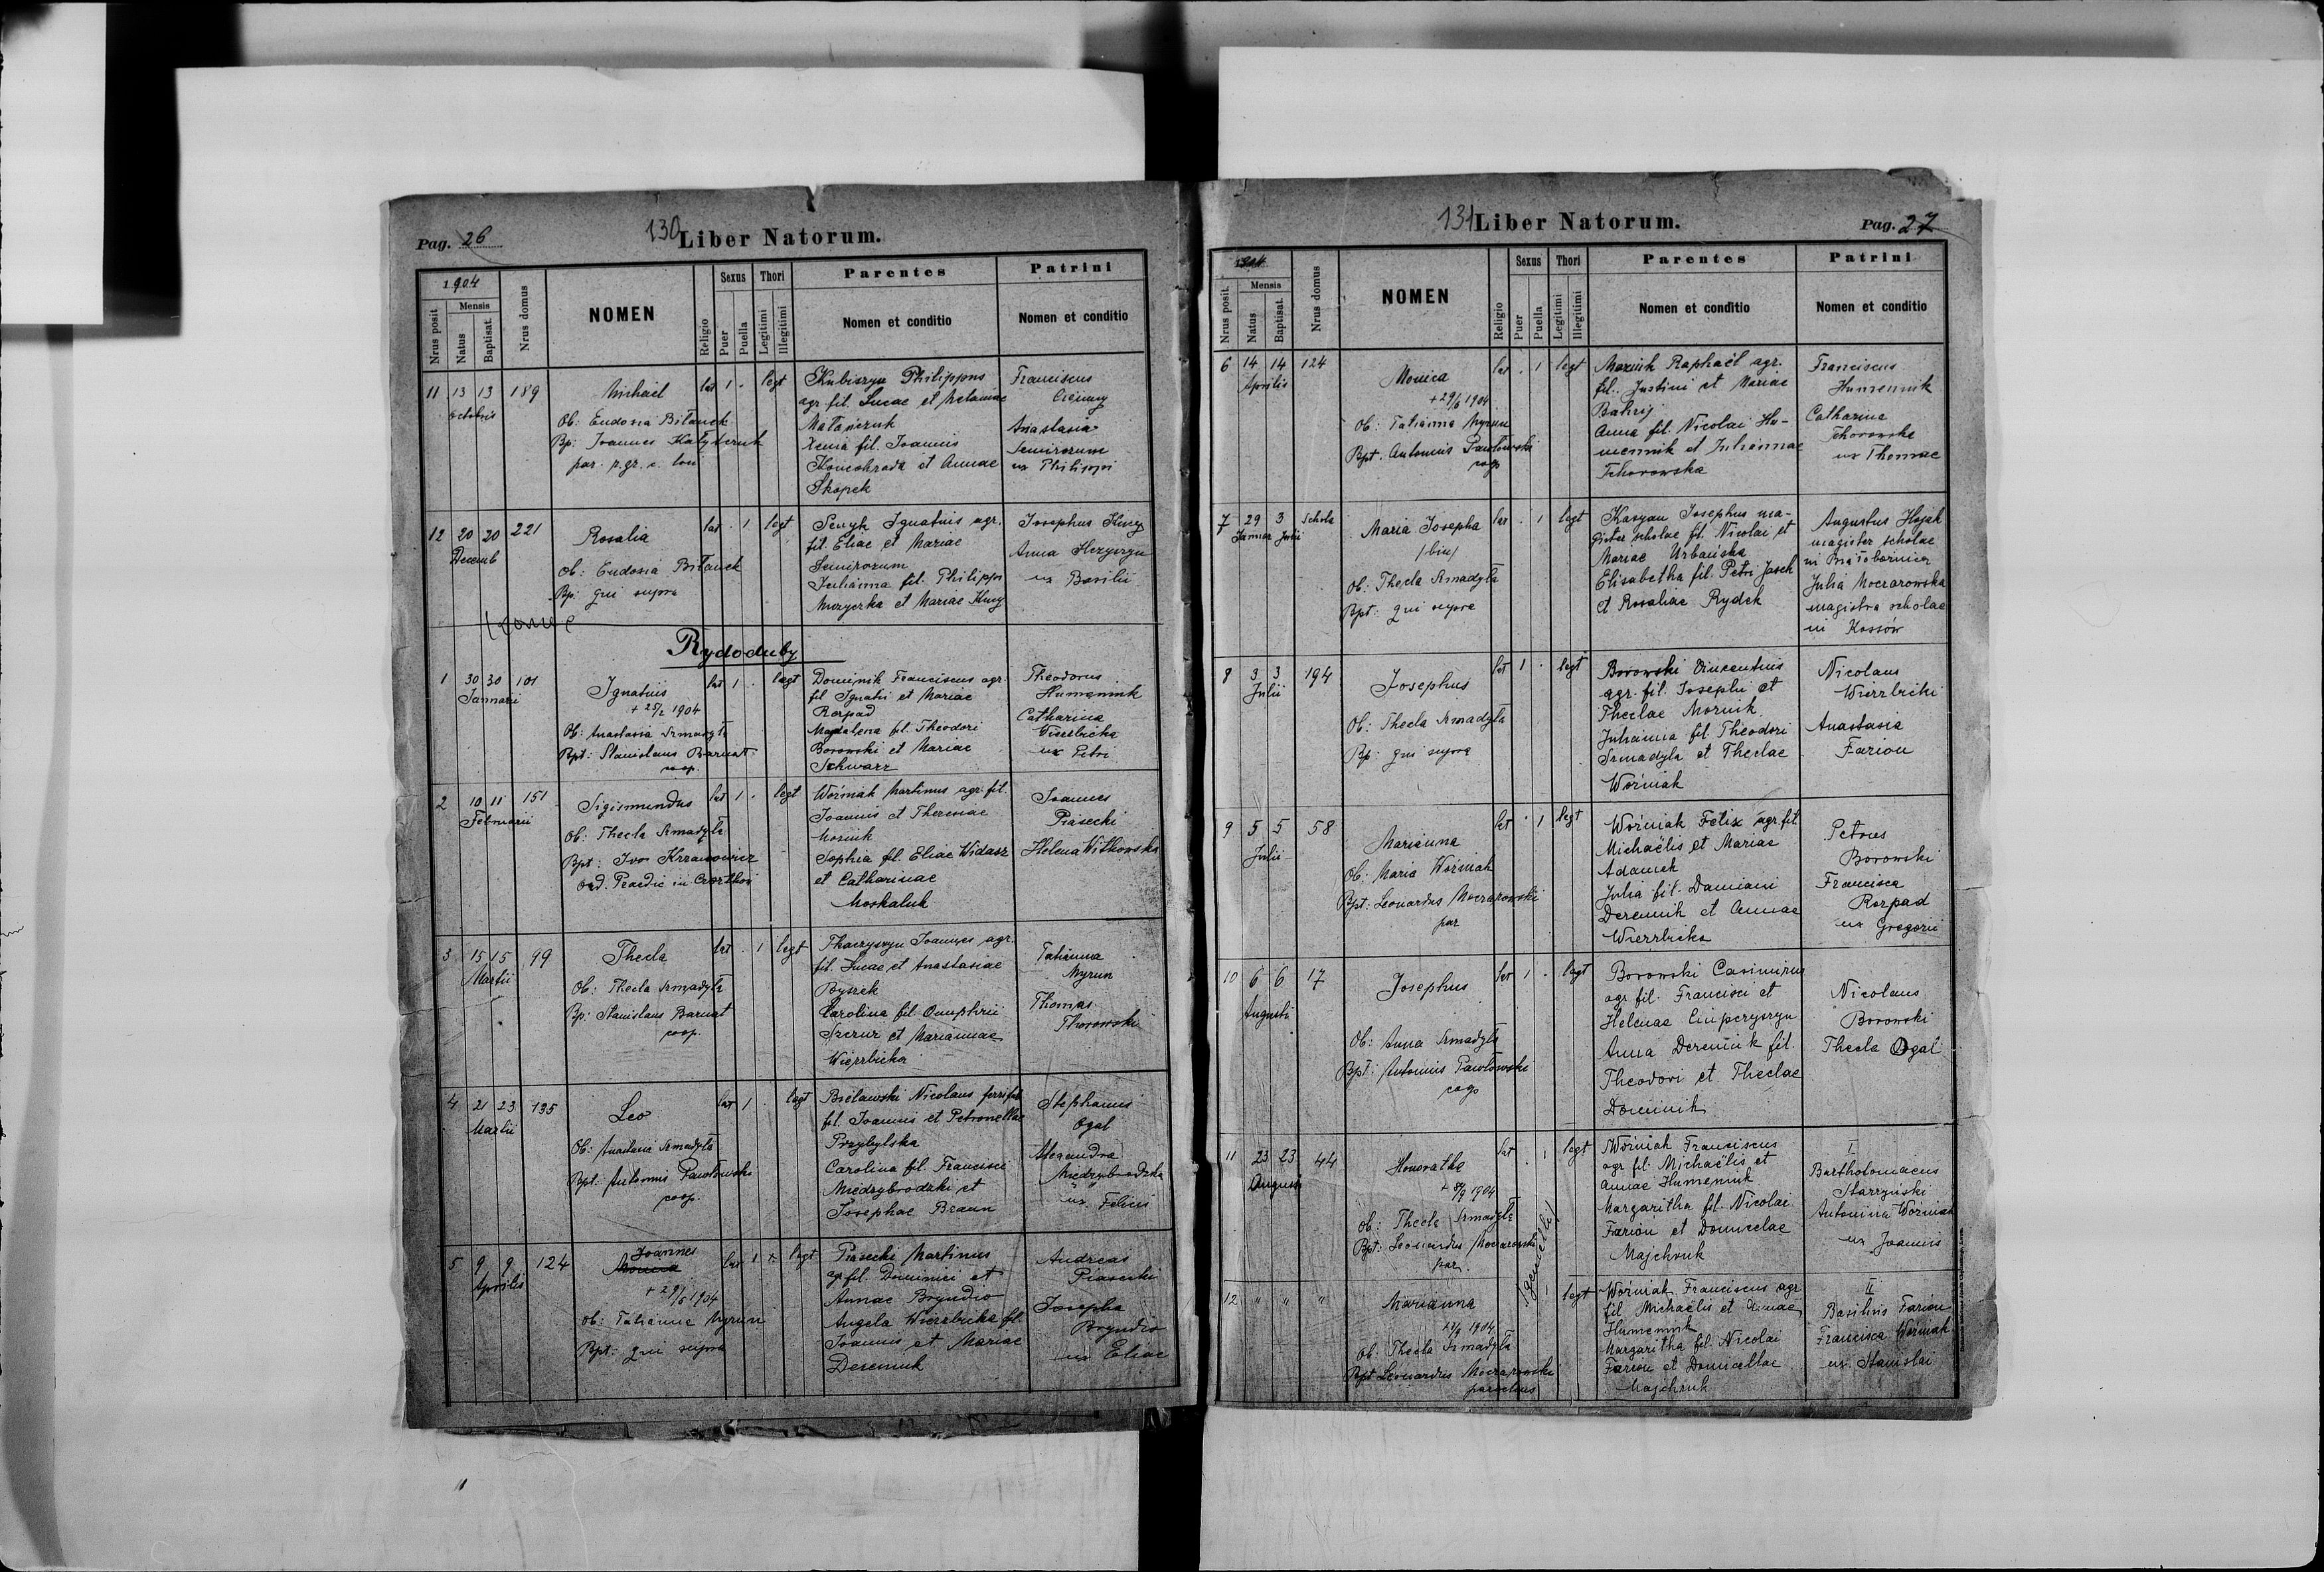 Pag. 26
130 Liber Natorum.
1904
Nrus posit.
Mensis
Natus
Baptisat.
Nrus domus
NOMEN
Religio
Sexus
Puer
Puella
Thori
Legitimi
Illegitimi
Parentes
Nomen et conditio
Patrini
Nomen et conditio
11 13 13 189
Octobris
Michael
Ob: Eudosia Bitanek
Bp: Joannes
par. r. gr. c.
lat 1 . legt
Skubiszyn Philippus
agr. fil. Lucae et Melaniae
Matanczuk
Xenia fil. Joannis
Konochrada et Annae
Skopek
Franciscus
Anastasia
Semirozum
ux Philippi
12 20 20 221
Decemb
Rosalia
Ob: Eudosia Bitanek
Bp: qui supra
lat . 1 legt
Senyk Ignatius agr.
fil. Eliae et Mariae
Semirozum
Julianna fil. Philippi
Mazyczka et Mariae
Josephus
Anna
ux Basilii
Rydoduby
1 30 30 101
Januarii
Ignatius
+ 25/2 1904
Ob: Anastasia Szmadyła
Bpt: Stanislaus Barnat
coop.
lat 1 . legt
Dominik Franciscus agr.
fil Ignatii et Mariae
Rozpad
Magdalena fil. Theodori
Borowski et Mariae
Schwarz
Theodorus
Humennik
Catharina
Wierzbicka
ux Petri
2 10 11 151
Februarii
Sigismundus
Ob: Thecla Szmadyła
Bpt: Ivo Krzanowicz
ord. Praedic in Czortków
lat 1 . legt
Woźniak Martinus agr. fil.
Joannis et Theresiae
Moźnik
Sophia fil. Eliae Widasz
et Catharinae
Moskaluk
Joannes
Piasecki
Helena Witkowska
3 15 15 99
Martii
Thecla
Ob: Thecla Szmadyła
Bp: Stanislaus Barnat
coop.
lat . 1 legt
Tkaczyszyn Joannes agr.
fil. Lucae et Anastasiae
Ryszek
Carolina fil Onuphrii
Szczur et Mariannae
Wierzbicka
Tatianna
Myrun
Thomas
Tchorowski
4 21 23 135
Martii
Leo
Ob: Anastasia Szmadyła
Bpt: Antonius Pawłowski
coop.
lat 1 . legt
Bielawski Nicolaus
fil. Joannis et Petronellae
Przybylska
Carolina fil. Francisci
Międzybrodzki et
Josephae Braun
Stephanus
Ogal
Alexandra
Międzybrodzka
ux. Felicis
5 9 9 124
Aprilis
Joannes
Monica
+ 29/6 1904
Ob: Tatianna Myrun
Bpt: qui supra
lat 1 . legt
Piasecki Martinus
agr. fil. Dominici et
Annae Bryndio
Angela Wierzbicka fil.
Joannis et Mariae
Deremnik
Andreas
Piasecki
Josepha
Bryndio
ux Eliae
131 Liber Natorum.
Pag. 27
1904
Nrus posit.
Mensis
Natus
Baptisat.
Nrus domus
NOMEN
Religio
Sexus
Puer
Puella
Thori
Legitimi
Illegitimi
Parentes
Nomen et conditio
Patrini
Nomen et conditio
6 14 14 124
Aprilis
Monica
+ 29/6 1904
Ob: Tatianna Myrun
Bpt. Antonius Pawłowski
coop
lat . 1 legt
Moźnik Raphaël agr.
fil. Justini et Mariae
Bahrij
Anna fil. Nicolai Hu-
mennik et Juliannae
Tchorowska
Franciscus
Humennik
Catharina
Tchorowska
ux Thomae
7 29 3 Schola
Januar Julii
Maria Josepha
/bin/
Ob: Thecla Szmadyła
Bpt: qui supra
lat . 1 legt
Kasyan Josephus ma-
gister scholae fil. Nicolai et
Mariae Urbańska
Elisabetha fil. Petri Jasek
et Rosaliae Rydek
Augustus Hojak
magister scholae
in Białobożnica
Julia Moczarowska
magistra scholae
in Kossów
8 3 3 194
Julii
Josephus
Ob: Thecla Szmadyła
Bp: qui supra
lat 1 . legt
Borowski Vincentius
agr. fil. Josephi et
Theclae Moźnik
Julianna fil. Theodori
Szmadyła et Theclae
Woźniak
Nicolaus
Wierzbicki
Anastasia
Farion
9 5 5 58
Julii
Marianna
Ob: Maria Woźniak
Bpt: Leonardus Moczarowski
par
lat . 1 legt
Woźniak Felix agr. fil.
Michaëlis et Mariae
Adamek
Julia fil. Damiani
Deremnik et Annae
Wierzbicka
Petrus
Borowski
Francisca
Rozpad
ux Gregorii
10 6 6 17
Augusti
Josephus
Ob: Anna Szmadyła
Bpt: Antonius Pawłowski
coop
lat 1 . legt
Borowski Casimirus
agr fil. Francisci et
Helenae
Anna Deremnik fil.
Theodori et Theclae
Dominik
Nicolaus
Borowski
Thecla Ogal
11 23 23 44
Augusti
Honoratha
+ 8/9 1904
Ob: Thecla Szmadyła
Bpt: Leonardus Moczarowski
par.
/gemelli/
lat . 1 legt
Woźniak Franciscus
agr fil. Michaëlis et
Annae Humennik
Margaritha fil. Nicolai
Farion et Domicelae
Majchruk
I
Bartholomaeus
Starzyński
Antonina Woźniak
ux Joannis
12 " " "
Marianna
Ob: Thecla Szmadyła
Bpt Leonardus Moczarowski
parochus
1 legt
Woźniak Franciscus agr
fil. Michaëlis et Annae
Humennik
Margaritha fil. Nicolai
Farion et Domicellae
Majchruk
II
Basilius Farion
Francisca Woźniak
ux. Stanislai